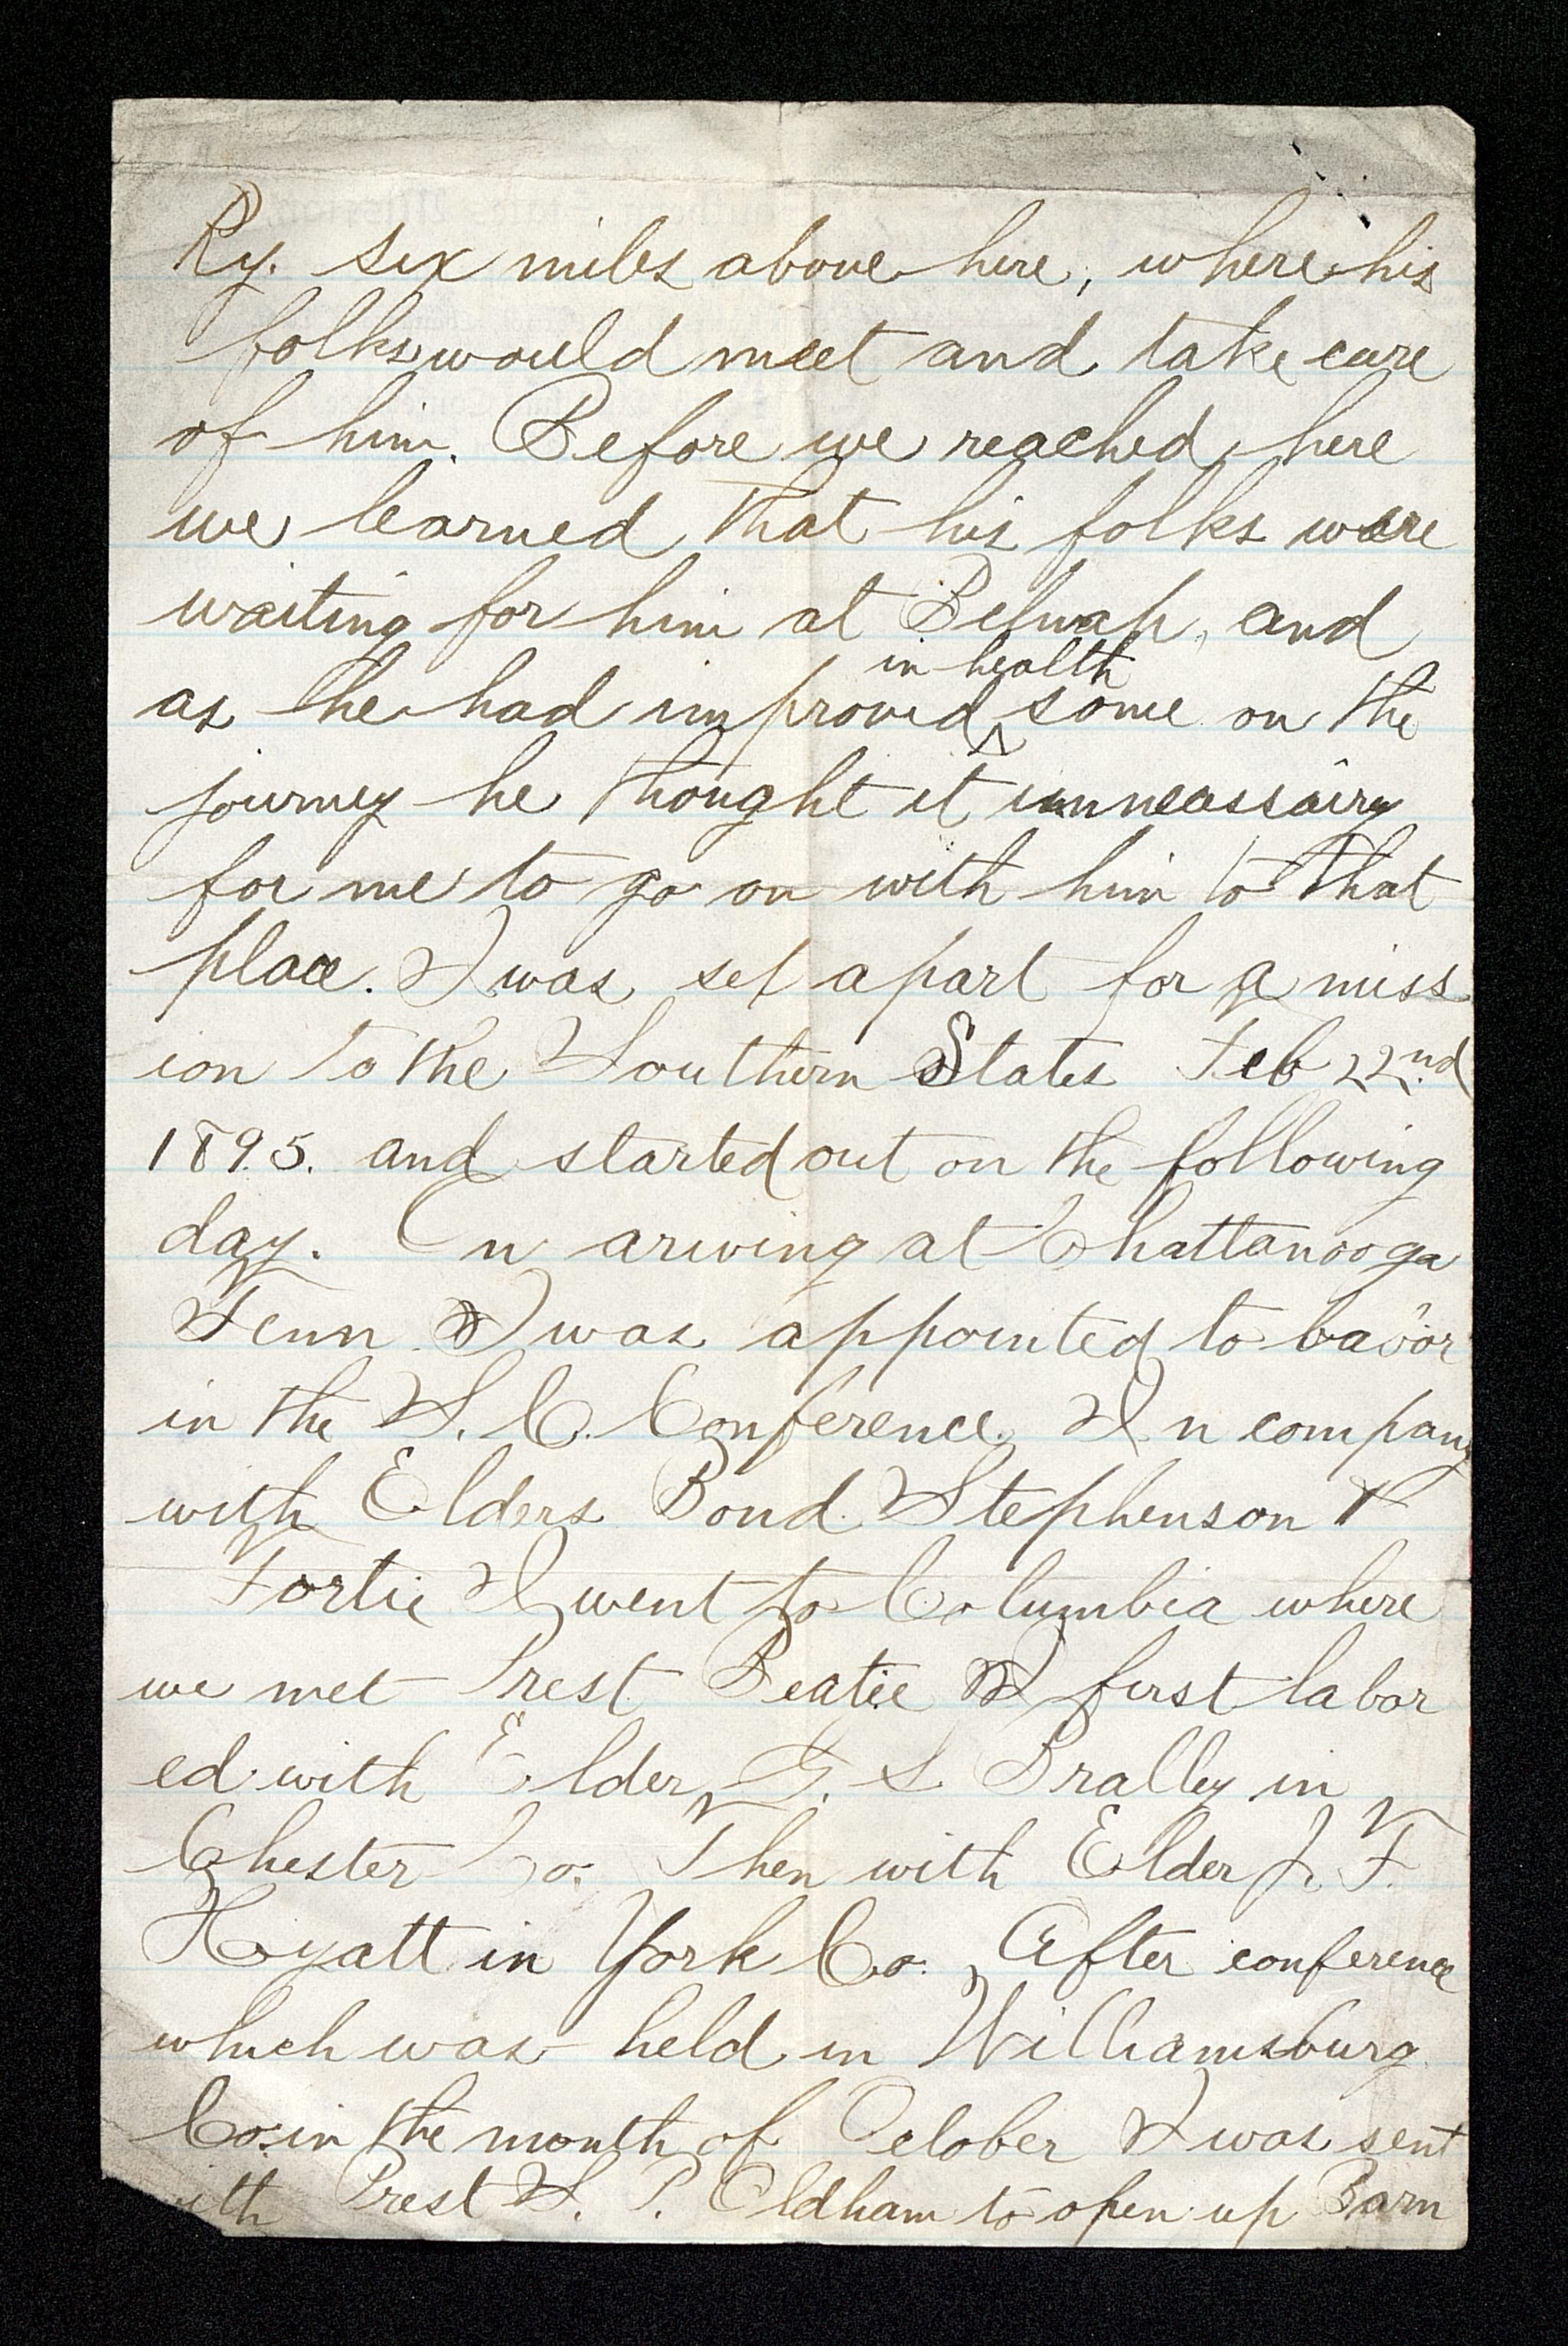 Ry. six miles above here, where his
folks would meet and take care
of him. Before we reached here
we learned that his folks were
waiting for him at Belnap, and
in health
as he had improved ^ some on the
journey he thought it unneassairy
for me to go on with him to that
place. I was set apart for a miss
ion to the Southern States Feb 22nd
1895. and started out on the following
day. On ariving at Chattanooga
Tenn I was appointed to labor
in the S. C. Conference. In company
with Elders Bond Stephenson &
Fortie I went to Columbia where
we met Prest Beatie I first labor
ed with Elder G. S. Bralley in
Chester Co. Then with Elder J. F.
Hoyatt in York Co. After conference
which was held in Williamsburg
Co. in the month of October I was sent
with Prest S. P. Oldham to open up Barn